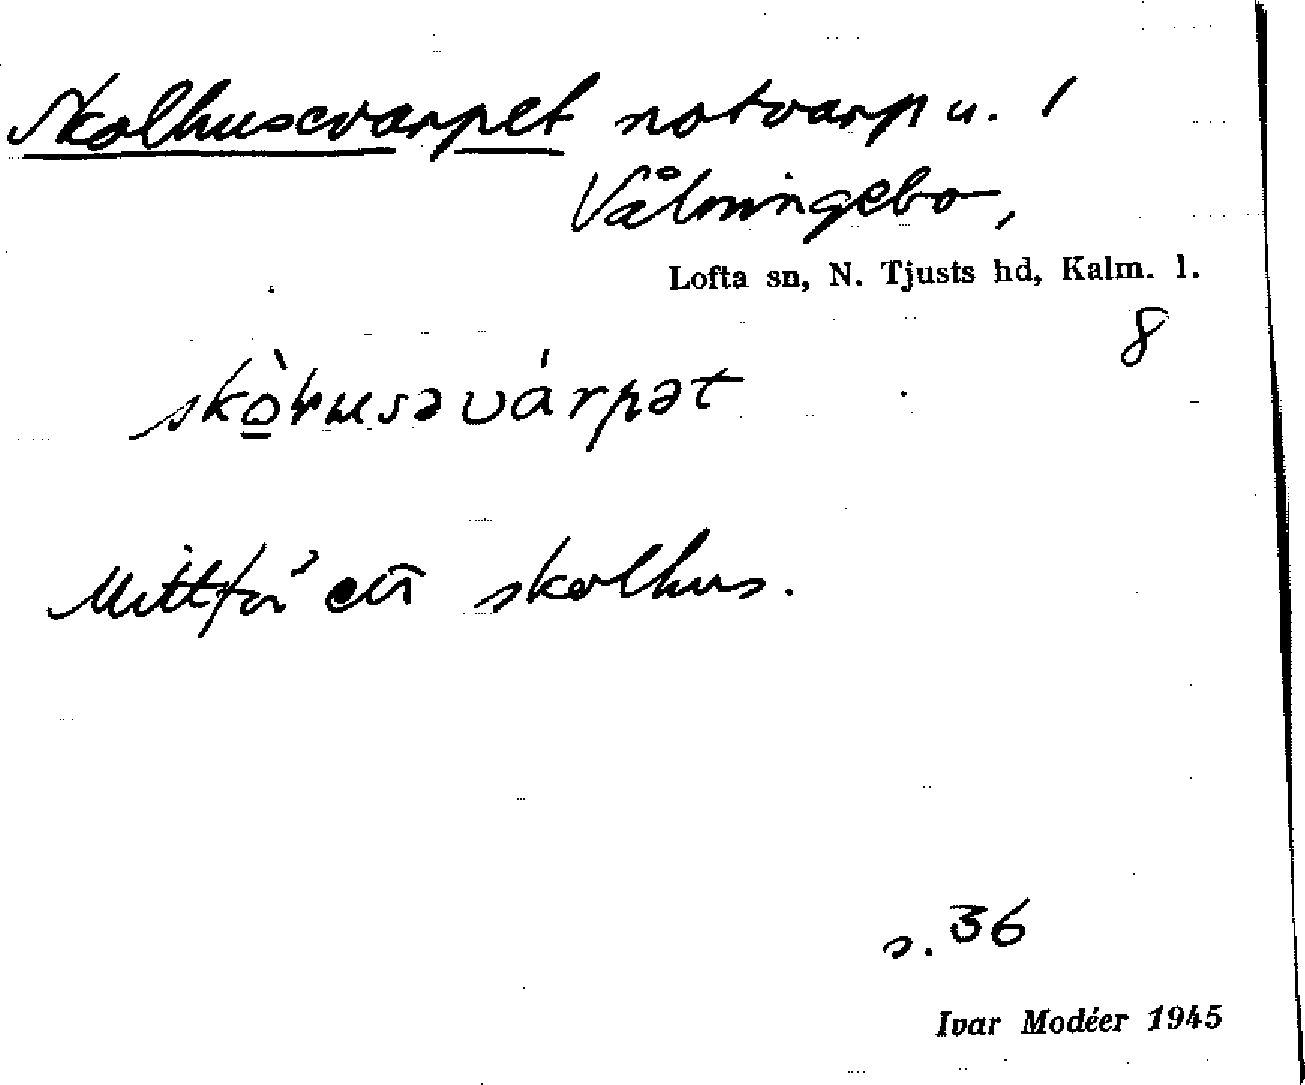 Skolhusevarpet notvarp u. /
Vålmingebo,
Lofta sn, N. Tjusts hd, Kalm. l.
8
Mittför ett skolhus.
s. 36
Ivar Modéer 1945